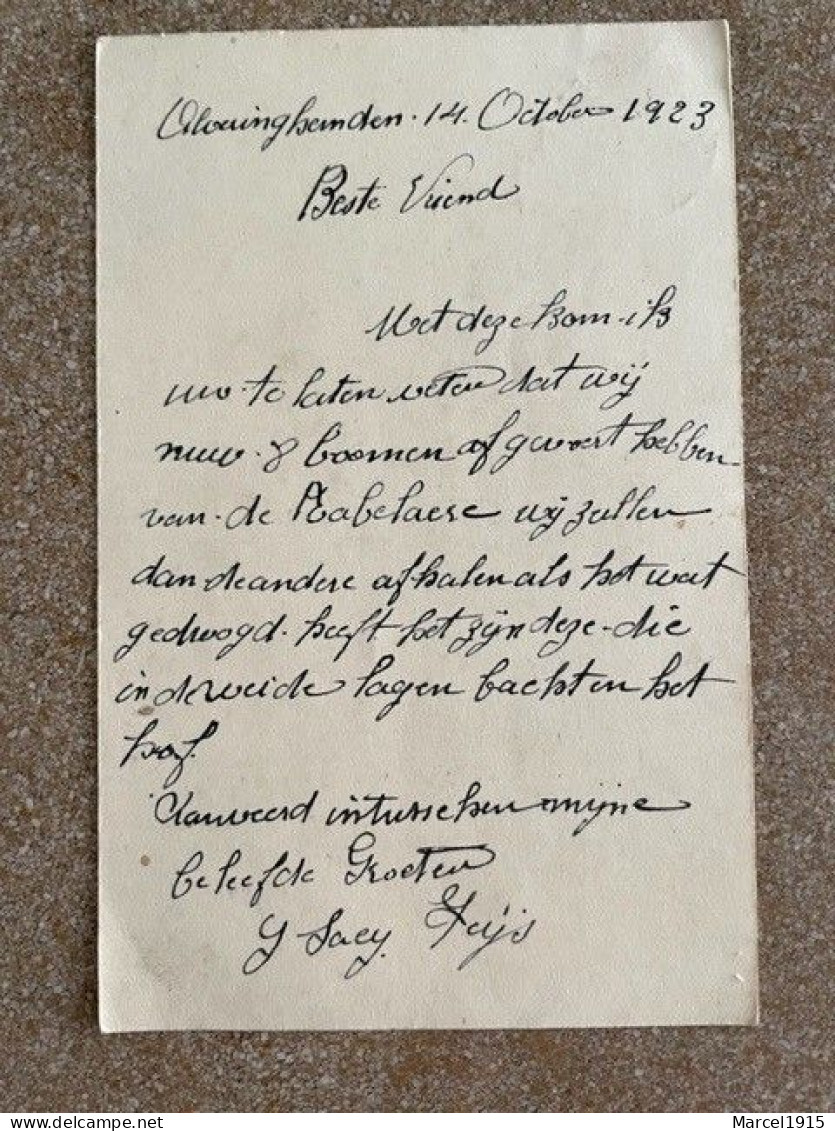 Alveringhem den 14 October 1923
Beste Vriend
Met deze kom ik
uw te laten weten dat wij
nuw 8 boomen afgevoert hebben
van de Rabelaere wij zullen
dan de andere afhalen als het wat
gedroogd heeft het zijn deze die
in de weide lagen bachten het
hof.
Aanveerd intusschen mijne
beleefde Groeten
Marcel1915